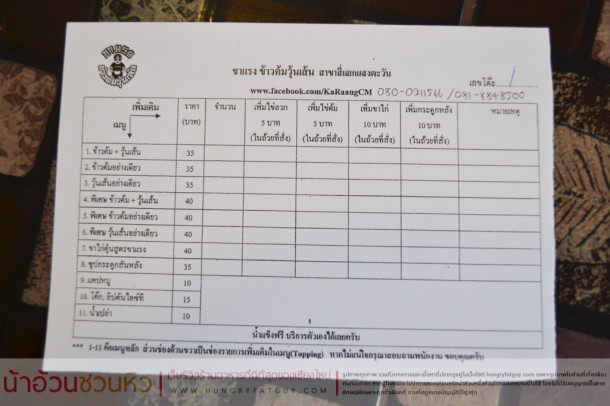 ขาแรง
ขาแรง ข้าวต้มวุ้นเส้น สาขาสี่แยกแสงตะวัน
เลขโต๊ะ 1
www.facebook.com/KaRaangCM 080-0311566 /081-8848500
เพิ่มเติม ราคา จำนวน เพิ่มไข่ลวก เพิ่มไข่ต้ม เพิ่มขาไก่ เพิ่มกระดูกหลัง หมายเหตุ
เมนู (บาท) 5 บาท 5 บาท 10 บาท 10 บาท
(ในถ้วยที่สั่ง) (ในถ้วยที่สั่ง) (ในถ้วยที่สั่ง) (ในถ้วยที่สั่ง)
1. ข้าวต้ม + วุ้นเส้น 35
2. ข้าวต้มอย่างเดียว 35
3. วุ้นเส้นอย่างเดียว 35
4. พิเศษ ข้าวต้ม + วุ้นเส้น 40
5. พิเศษ ข้าวต้มอย่างเดียว 40
6. พิเศษ วุ้นเส้นอย่างเดียว 40
7. ขาไก่ตุ๋นสูตรขาแรง 40
8. ซุปกระดูกสันหลัง 35
9. แคปหมู 10
10. โค๊ก, ลิปตันไอซ์ที 15
11. น้ำเปล่า 10
น้ำแข็งฟรี บริการตัวเองได้เลยครับ
*** 1-11 คือเมนูหลัก ส่วนช่องด้านขวาเป็นช่องรายการเพิ่มเติมในเมนู(Topping) หากไม่แน่ใจกรุณาสอบถามพนักงาน ขอบคุณครับ
น้าอ้วนชวนหิว เว็บรีวิวร้านอาหารที่ดีที่สุดของเชียงใหม่
WWW.HUNGRYFATGUY.COM